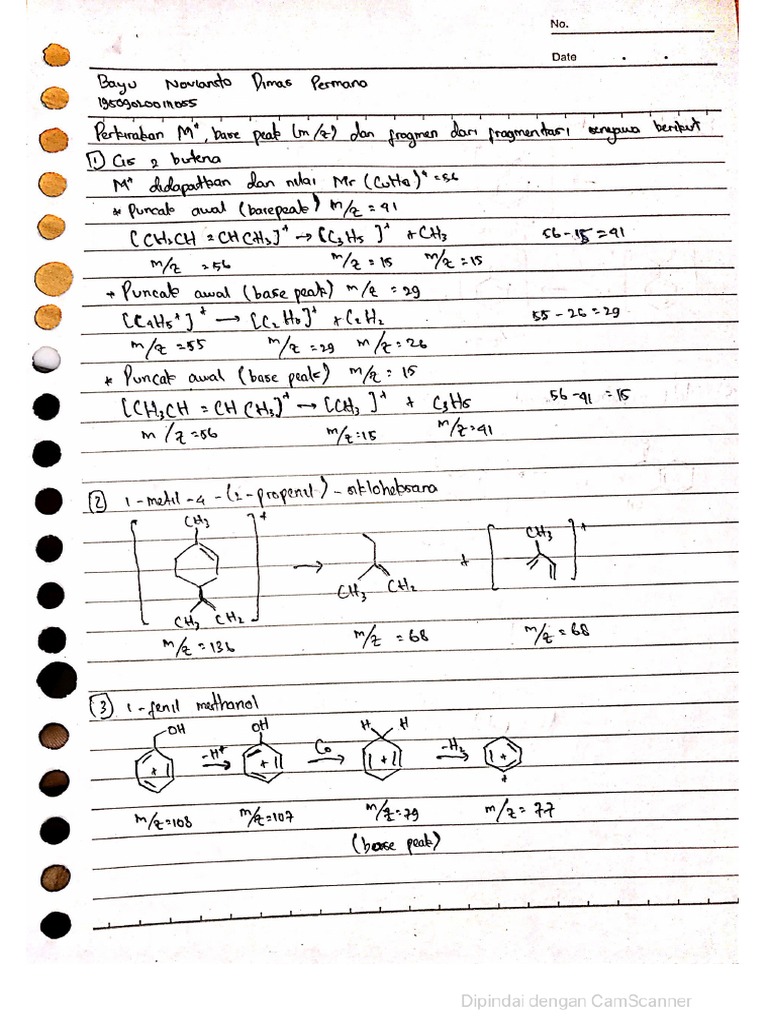 No.
Date . .
Bayu Novianto Dimas Permana
Perkirakan M⁺, base peak (m/z) dan fragmen dari fragmentasi senyawa berikut
① Cis 2 butena
M⁺ didapatkan dari nilai Mr (C₄H₈)⁺ = 56
* Puncak awal (base peak) m/z = 41
[CH₃CH = CHCH₃]⁺ → [C₃H₅]⁺ + CH₃ 56 - 15 = 41
m/z = 56 m/z = 15 m/z = 15
* Puncak awal (base peak) m/z = 29
[C₄H₅⁺]⁺ → [C₂H₅]⁺ + C₂H₂ 55 - 26 = 29
m/z = 55 m/z = 29 m/z = 26
* Puncak awal (base peak) m/z = 15
[CH₃CH = CHCH₃]⁺ → [CH₃]⁺ + C₃H₅ 56 - 41 = 15
m/z = 56 m/z = 15 m/z = 41
② 1-metil-4-(2-propenil)-sikloheksana
CH₃ + CH₃ +
→ +
CH₃ CH₂
CH₃ CH₂
m/z = 136 m/z = 68 m/z = 68
③ 1-fenil methanol
OH OH H H
-H⁺ CO -H₂
+ + + +
m/z = 108 m/z = 107 m/z = 79 m/z = 77
(base peak)
Dipindai dengan CamScanner